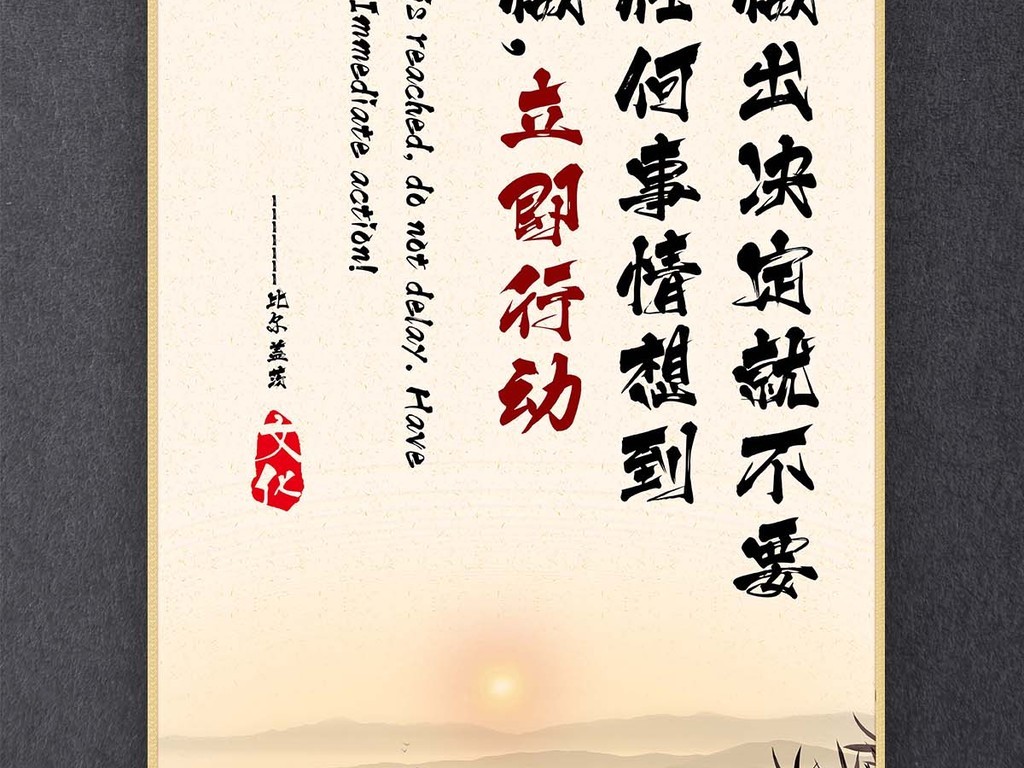 做出决定就不要
任何事情想到
做,立即行动
is reached, do not delay. Have
Immediate action!
--------比尔盖茨
文化